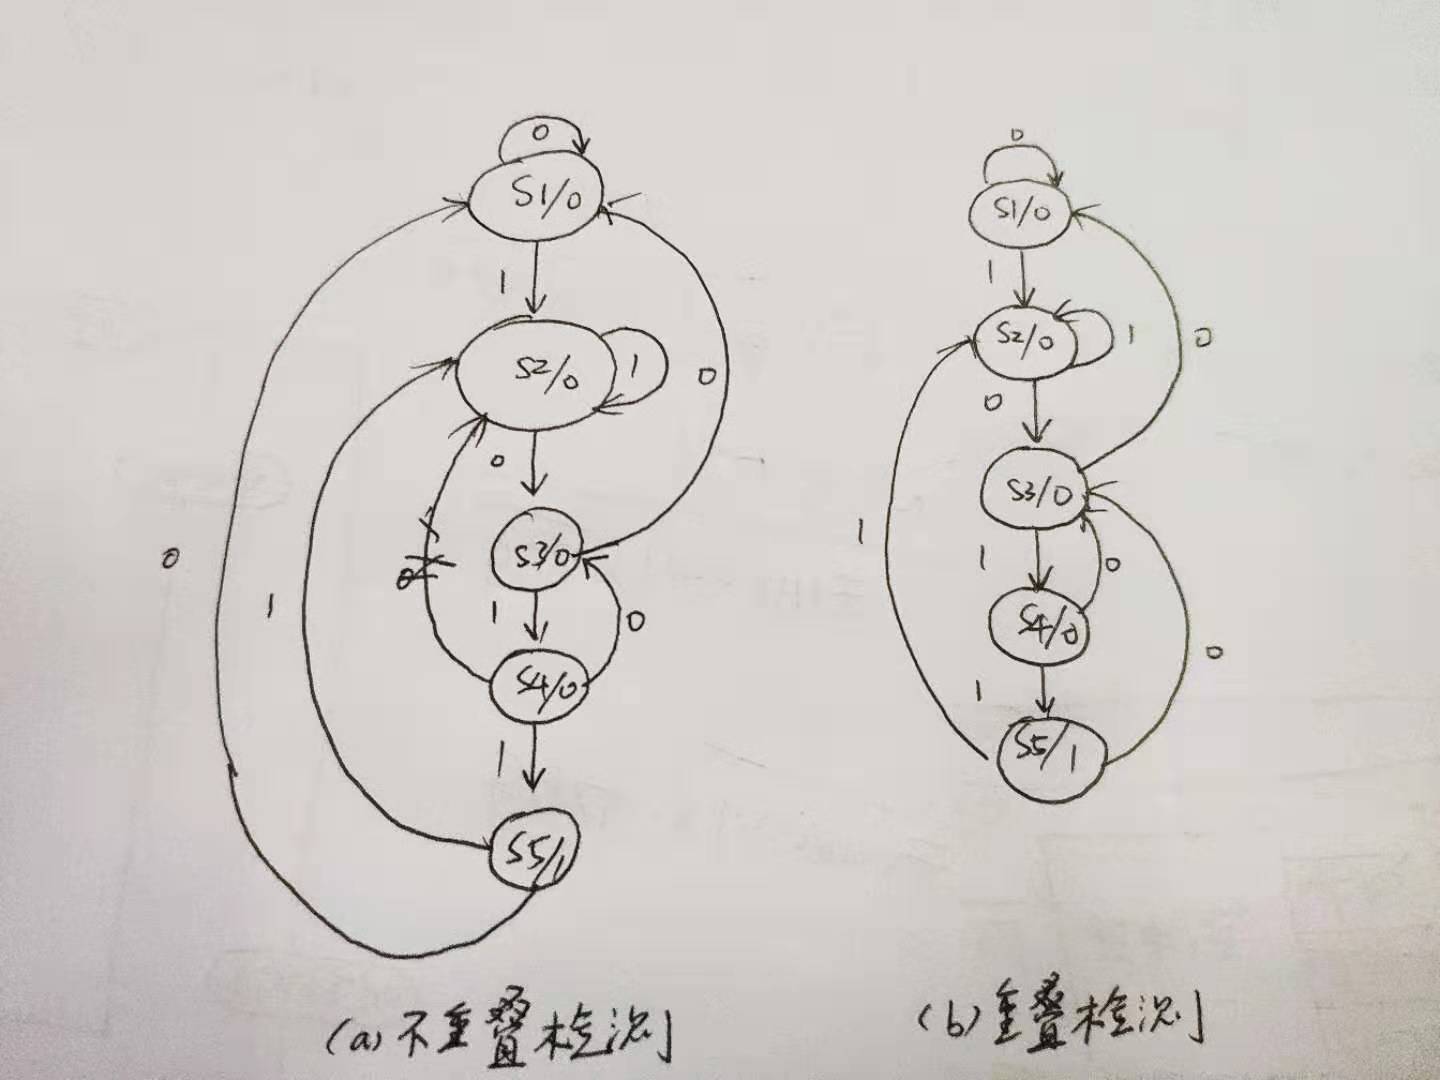 0
S1/0
1
S2/0
1
0
0
S3/0
1
0
S4/0
1
S5/1
0
1
(a)不重叠检测
0
S1/0
1
S2/0
1
0
0
S3/0
1
0
S4/0
1
0
S5/1
1
(b)重叠检测